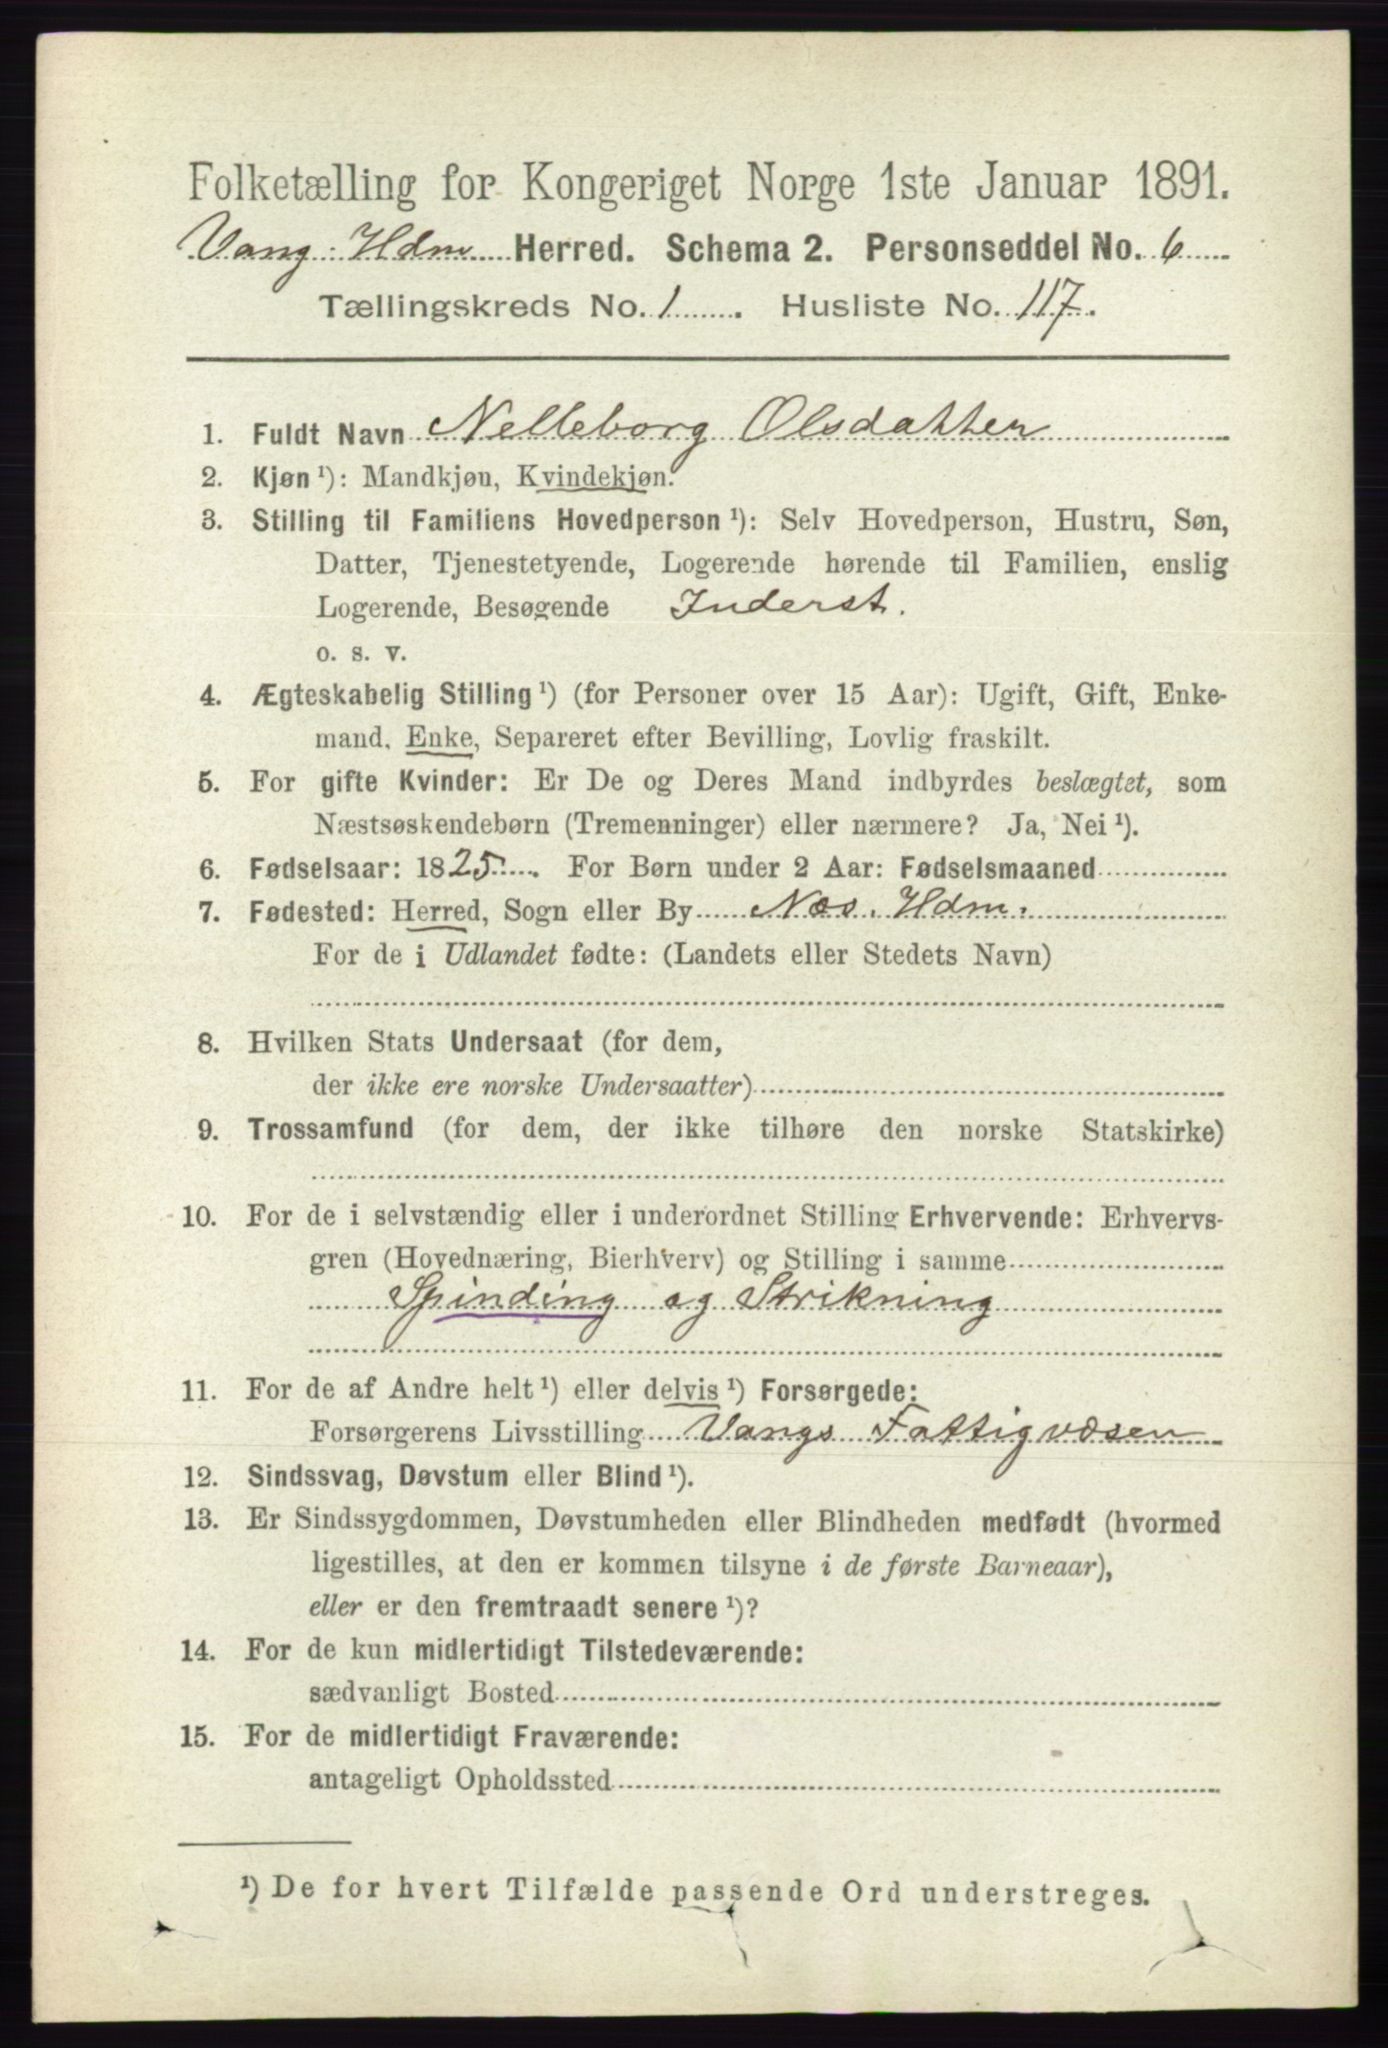 Folketælling for Kongeriget Norge 1ste Januar 1891.
Vang. Hdm Herred. Schema 2. Personseddel No. 6
Tællingskreds No. 1. Husliste No. 117.
1. Fuldt Navn Nelleborg Olsdatter
2. Kjøn ¹): Mandkjøn, Kvindekjøn.
3. Stilling til Familiens Hovedperson ¹): Selv Hovedperson, Hustru, Søn,
Datter, Tjenestetyende, Logerende hørende til Familien, enslig
Logerende, Besøgende Inderst.
o. s. v.
4. Ægteskabelig Stilling ¹) (for Personer over 15 Aar): Ugift, Gift, Enke-
mand, Enke, Separeret efter Bevilling, Lovlig fraskilt.
5. For gifte Kvinder: Er De og Deres Mand indbyrdes beslægtet, som
Næstsøskendebørn (Tremenninger) eller nærmere? Ja, Nei ¹).
6. Fødselsaar: 1825. For Børn under 2 Aar: Fødselsmaaned
7. Fødested: Herred, Sogn eller By Næs. Hdm.
For de i Udlandet fødte: (Landets eller Stedets Navn)
8. Hvilken Stats Undersaat (for dem,
der ikke ere norske Undersaatter)
9. Trossamfund (for dem, der ikke tilhøre den norske Statskirke)
10. For de i selvstændig eller i underordnet Stilling Erhvervende: Erhvervs-
gren (Hovednæring, Bierhverv) og Stilling i samme
Spinding og Strikning
11. For de af Andre helt ¹) eller delvis ¹) Forsørgede:
Forsørgerens Livsstilling Vangs Fattigvæsen
12. Sindssvag, Døvstum eller Blind ¹).
13. Er Sindssygdommen, Døvstumheden eller Blindheden medfødt (hvormed
ligestilles, at den er kommen tilsyne i de første Barneaar),
eller er den fremtraadt senere ¹)?
14. For de kun midlertidigt Tilstedeværende:
sædvanligt Bosted
15. For de midlertidigt Fraværende:
antageligt Opholdssted
¹) De for hvert Tilfælde passende Ord understreges.